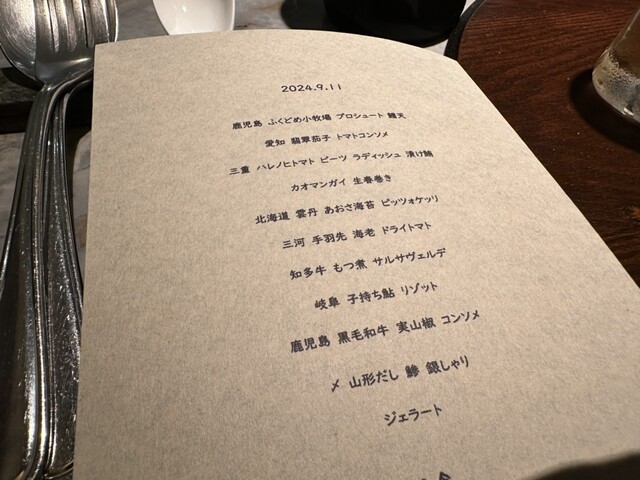 2024.9.11
鹿児島 ふくどめ小牧場 プロシュート 鱧天
愛知 翡翠茄子 トマトコンソメ
三重 ハレノヒトマト ビーツ ラディッシュ 漬け鮪
カオマンガイ 生春巻き
北海道 雲丹 あおさ海苔 ピッツォケッリ
三河 手羽先 海老 ドライトマト
知多牛 もつ煮 サルサヴェルデ
岐阜 子持ち鮎 リゾット
鹿児島 黒毛和牛 実山椒 コンソメ
〆 山形だし 鯵 銀しゃり
ジェラート